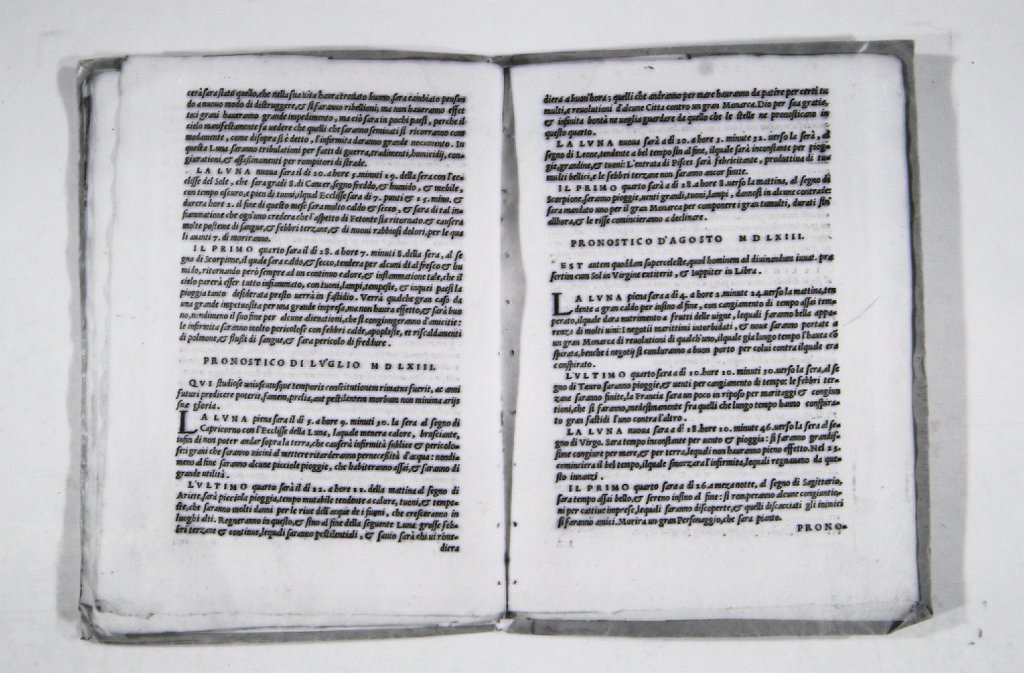 cerà sarà stato quello, che nella sua vita haura trouato buono, sara cambiato pensen
do a nuouo modo di destruggere, & si faranno ribellioni; ma non haueranno effet
to: i grani haueranno grande impedimento, ma ciò sara in pochi paesi, perche il
cielo manifestamente fa uedere che quelli che saranno seminati si ricorranno com
modamente, come disopra si è detto, l'infirmita daranno grande nocumento. In
questa Luna saranno tribulationi per fatti di guerra, tradimenti, homicidij, con-
giurationi, & assassinamenti per rompitori di strade.
LA LVNA nuoua sarà il dì 20. a hore 5. minuti 19. della sera, con l'ec-
clisse del Sole, che sara gradi 8. di Cancer, segno freddo, & humido, & mobile,
con tempo oscuro, e pien di tuoni, ilqual Ecclisse sara di 7. punti & 25. minu. &
durera hore 2. il fine di questo mese sara molto caldo & secco, & sara di tal in-
fiammatione che ogn'uno credera che l'aspetto di Fetonte sia ritornato, & causera
molte posteme di sangue, & febbri terzane, & di nuoui rabbiosi dolori, per le qua
li auanti 7. dì moriranno.
IL PRIMO quarto sara il dì 28. a hore 7. minuti 8. della sera, al se
gno di Scorpione, il quale sara caldo, & secco, tendera per alcuni dì al fresco & hu
mido, ritornando però sempre ad un continuo calore, & infiammatione tale, che il
cielo parerà esser tutto infiammato, con tuoni, lampi, tempeste, & in quei paesi la
pioggia tanto desiderata presto uerrà in fastidio. Verrà qualche gran caso da
una grande impetuosita per una grande impresa, ma non haura effetto, & sarà buo
no, nondimeno il suo fine per alcune alienationi, che si congiungeranno d'amicitie:
le infirmita saranno molto pericolose con febbri calde, apoplesse, et riscaldamenti
di polmone, & flussi di sangue, & sara pericolo di freddure.
PRONOSTICO DI LVGLIO M D LXIII.
QVI studiose uniuscuiusque temporis constitutionem rimatus fuerit, ac anni
futuri predicere poterit, famem, prælia, aut pestilentem morbum non minima artis
suæ gloria.
LA LVNA piena sara il dì 5. a hore 9. minuti 30. la sera al segno di
Capricorno con l'Ecclisse della Luna, laquale menera calore, brusciante,
insin di non poter andar sopra la terra, che causerà infirmità febbrie & pericolo-
se: i grani che saranno uicini al mettere ritarderanno per necessità d'acqua: nondi-
meno al fine saranno alcune picciole pioggie, che habiteranno assai, & saranno di
grande utilità.
L'VLTIMO quarto sarà il dì 12. a hore 11. della mattina al segno di
Ariete, sarà picciola pioggia, tempo mutabile tendente a calore, tuoni, & tempe-
ste, che saranno molti danni per le riue dell'acque de i fiumi, che cresceranno in
luoghi alti. Regneranno in questo, & fino al fine della seguente Luna grosse feb-
bri terzane & continue, lequali saranno pestilentidi, & sauio sarà chi ui rime-
diera
diera a buon'hora: quelli che andranno per mare hauranno da patire per certi tu
multi, e reuolutioni d'alcune Città contro un gran Monarca. Dio per sua gratia,
& infinita bontà ne uoglia guardare da quello che le stelle ne pronosticano in
questo quarto.
LA LVNA nuoua sarà a dì 20. a hore 3. minute 32. uerso la serà, al
segno di Leone, tendente a bel tempo fin al fine, ilquale sarà inconstante per piog-
gie, grandine, & tuoni: L'entrata di Pisces sarà febricitante, produttiua di tu-
multi bellici, e le febbri terzane non saranno ancor finite.
IL PRIMO quarto sarà a dì 28. a hore 8. uerso la mattina, al segno di
Scorpione, saranno pioggie, uenti grandi, tuoni, lampi, dannosi in alcune contrade:
sara mandato uno per il gran Monarca per componere i gran tumulti, durati sin'
allhora, & le risse comincieranno a declinare.
PRONOSTICO D'AGOSTO M D LXIII.
EST autem quoddam supercæleste, quod hominem ad diuinandum iuuat. præ
sertim cum Sol in Virgine extiterit, & Iuppiter in Libra.
LA LVNA piena sara a dì 4. a hore 1. minute 24. uerso la mattina, ten
dente a gran caldo per insino al fine, con cangiamento di tempo assai tem
perato, ilquale dara nutrimento a frutti delle uigne, lequali faranno bella appa-
renza di molti uini: I negotii marittimi intorbidati, & noue saranno portate a
un gran Monarca di reuolutioni di qualch'uno, ilquale gia lungo tempo l'haueua cō
spirata, benche i negotij si conduranno a buon porto per colui contra ilquale era
conspirato.
L'VLTIMO quarto sara a dì 10. hore 10. minuti 30. uerso la sera, al se
gno di Tauro, saranno pioggie, & uenti per cangiamento di tempo: le febbri ter-
zane saranno finite, la Francia sara un poco in riposo per maritaggi & congiun
tioni, che si faranno, medesimamente fra quelli che lungo tempo hanno conspira-
to gran fastidi l'uno contra l'altro.
LA LVNA nuoua sara a dì 18. hore 10. minute 46. uerso la sera al se-
gno di Virgo. Sara tempo inconstante per uento & pioggia: si faranno grandis-
sime congiure per mare, & per terra, lequali non hauranno pieno effetto. Nel 25.
comincierà il bel tempo, ilquale smorzara l'infirmita, lequali regnauano da que-
sto innanzi.
IL PRIMO quarto sara a dì 26. a meza notte, al segno di Sagittario,
sara tempo assai bello, & sereno insino al fine: si romperanno alcune congiuntio-
ni per cattiue imprese, lequali saranno discoperte, & quelli discacciati gli inimici
si faranno amici. Morira un gran Personaggio, che sara pianto.
PRONO-